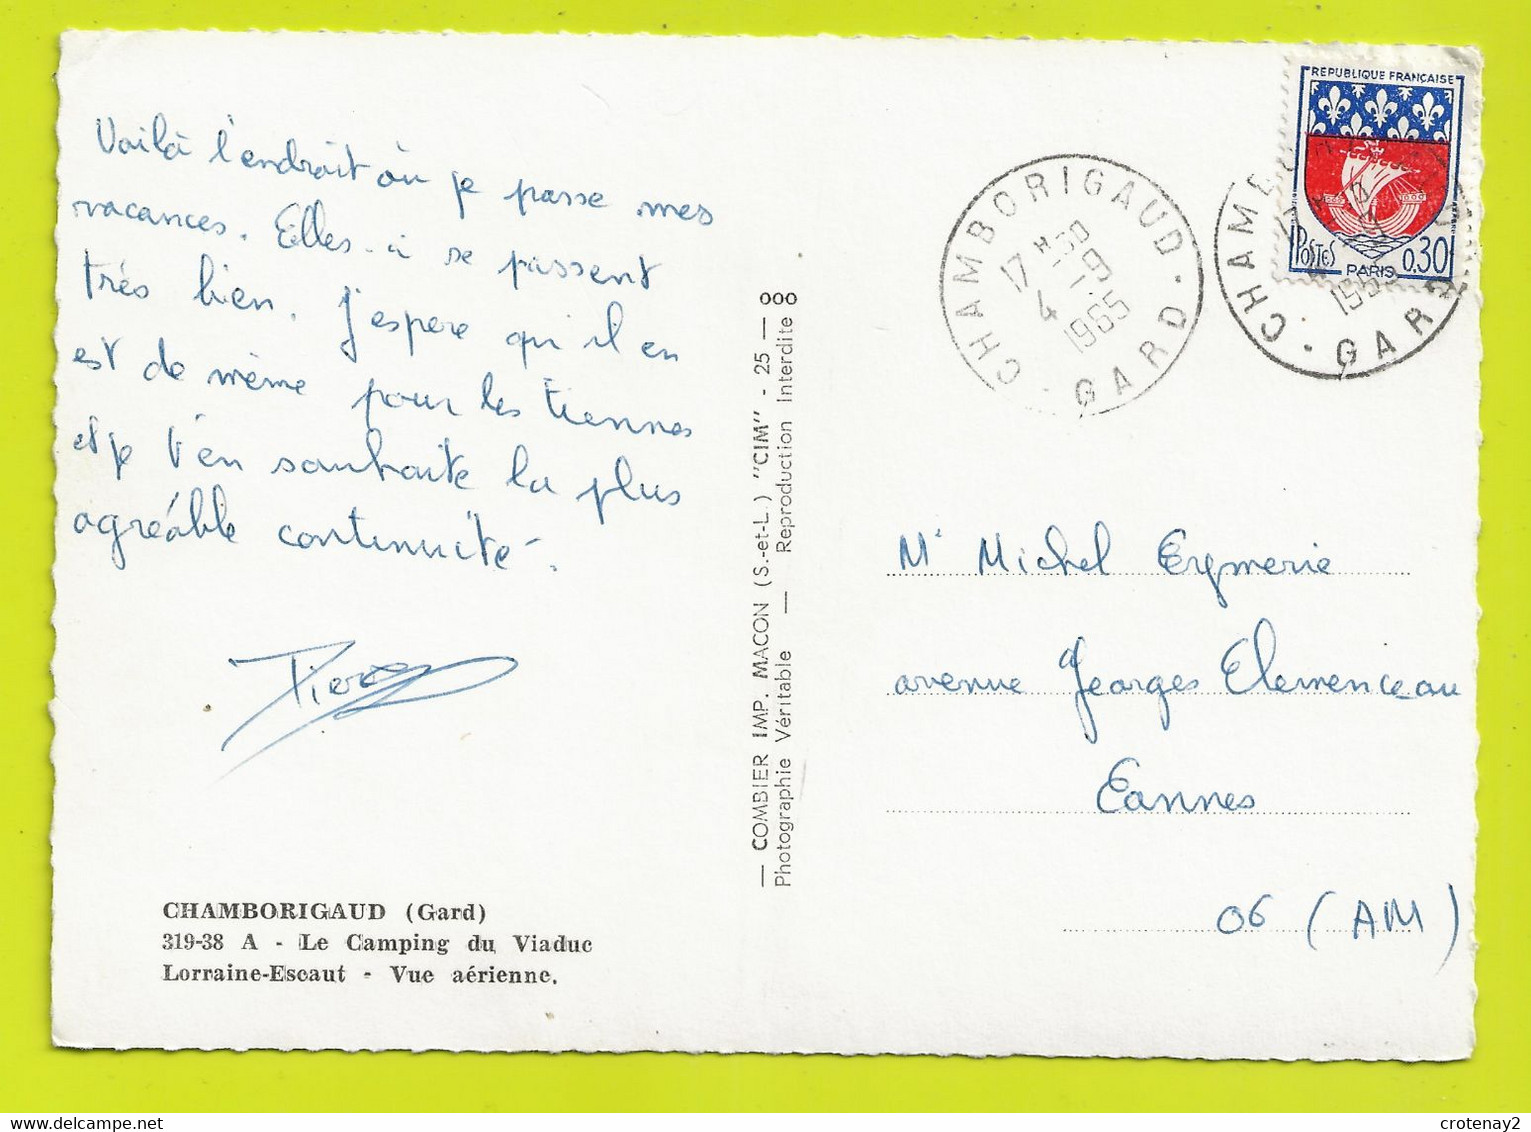 Voilà l'endroit où je passe mes
vacances. Elles-ci se passent
très bien. J'espere qu'il en
est de même pour les tiennes
et je t'en souhaite la plus
agréable continuité.
Pierre
CHAMBORIGAUD (Gard)
319-38 A - Le Camping du Viaduc
Lorraine-Escaut - Vue aérienne.
— COMBIER IMP. MACON (S.-et-L.) "CIM" - 25 — 000
Photographie Véritable — Reproduction Interdite
CHAMBORIGAUD
17 H 30
4 - 9
1965
GARD
RÉPUBLIQUE FRANÇAISE
POSTES
PARIS
0,30
Mr Michel Eymerie
avenue Georges Clemenceau
Cannes
06 (AM)
crotenay2